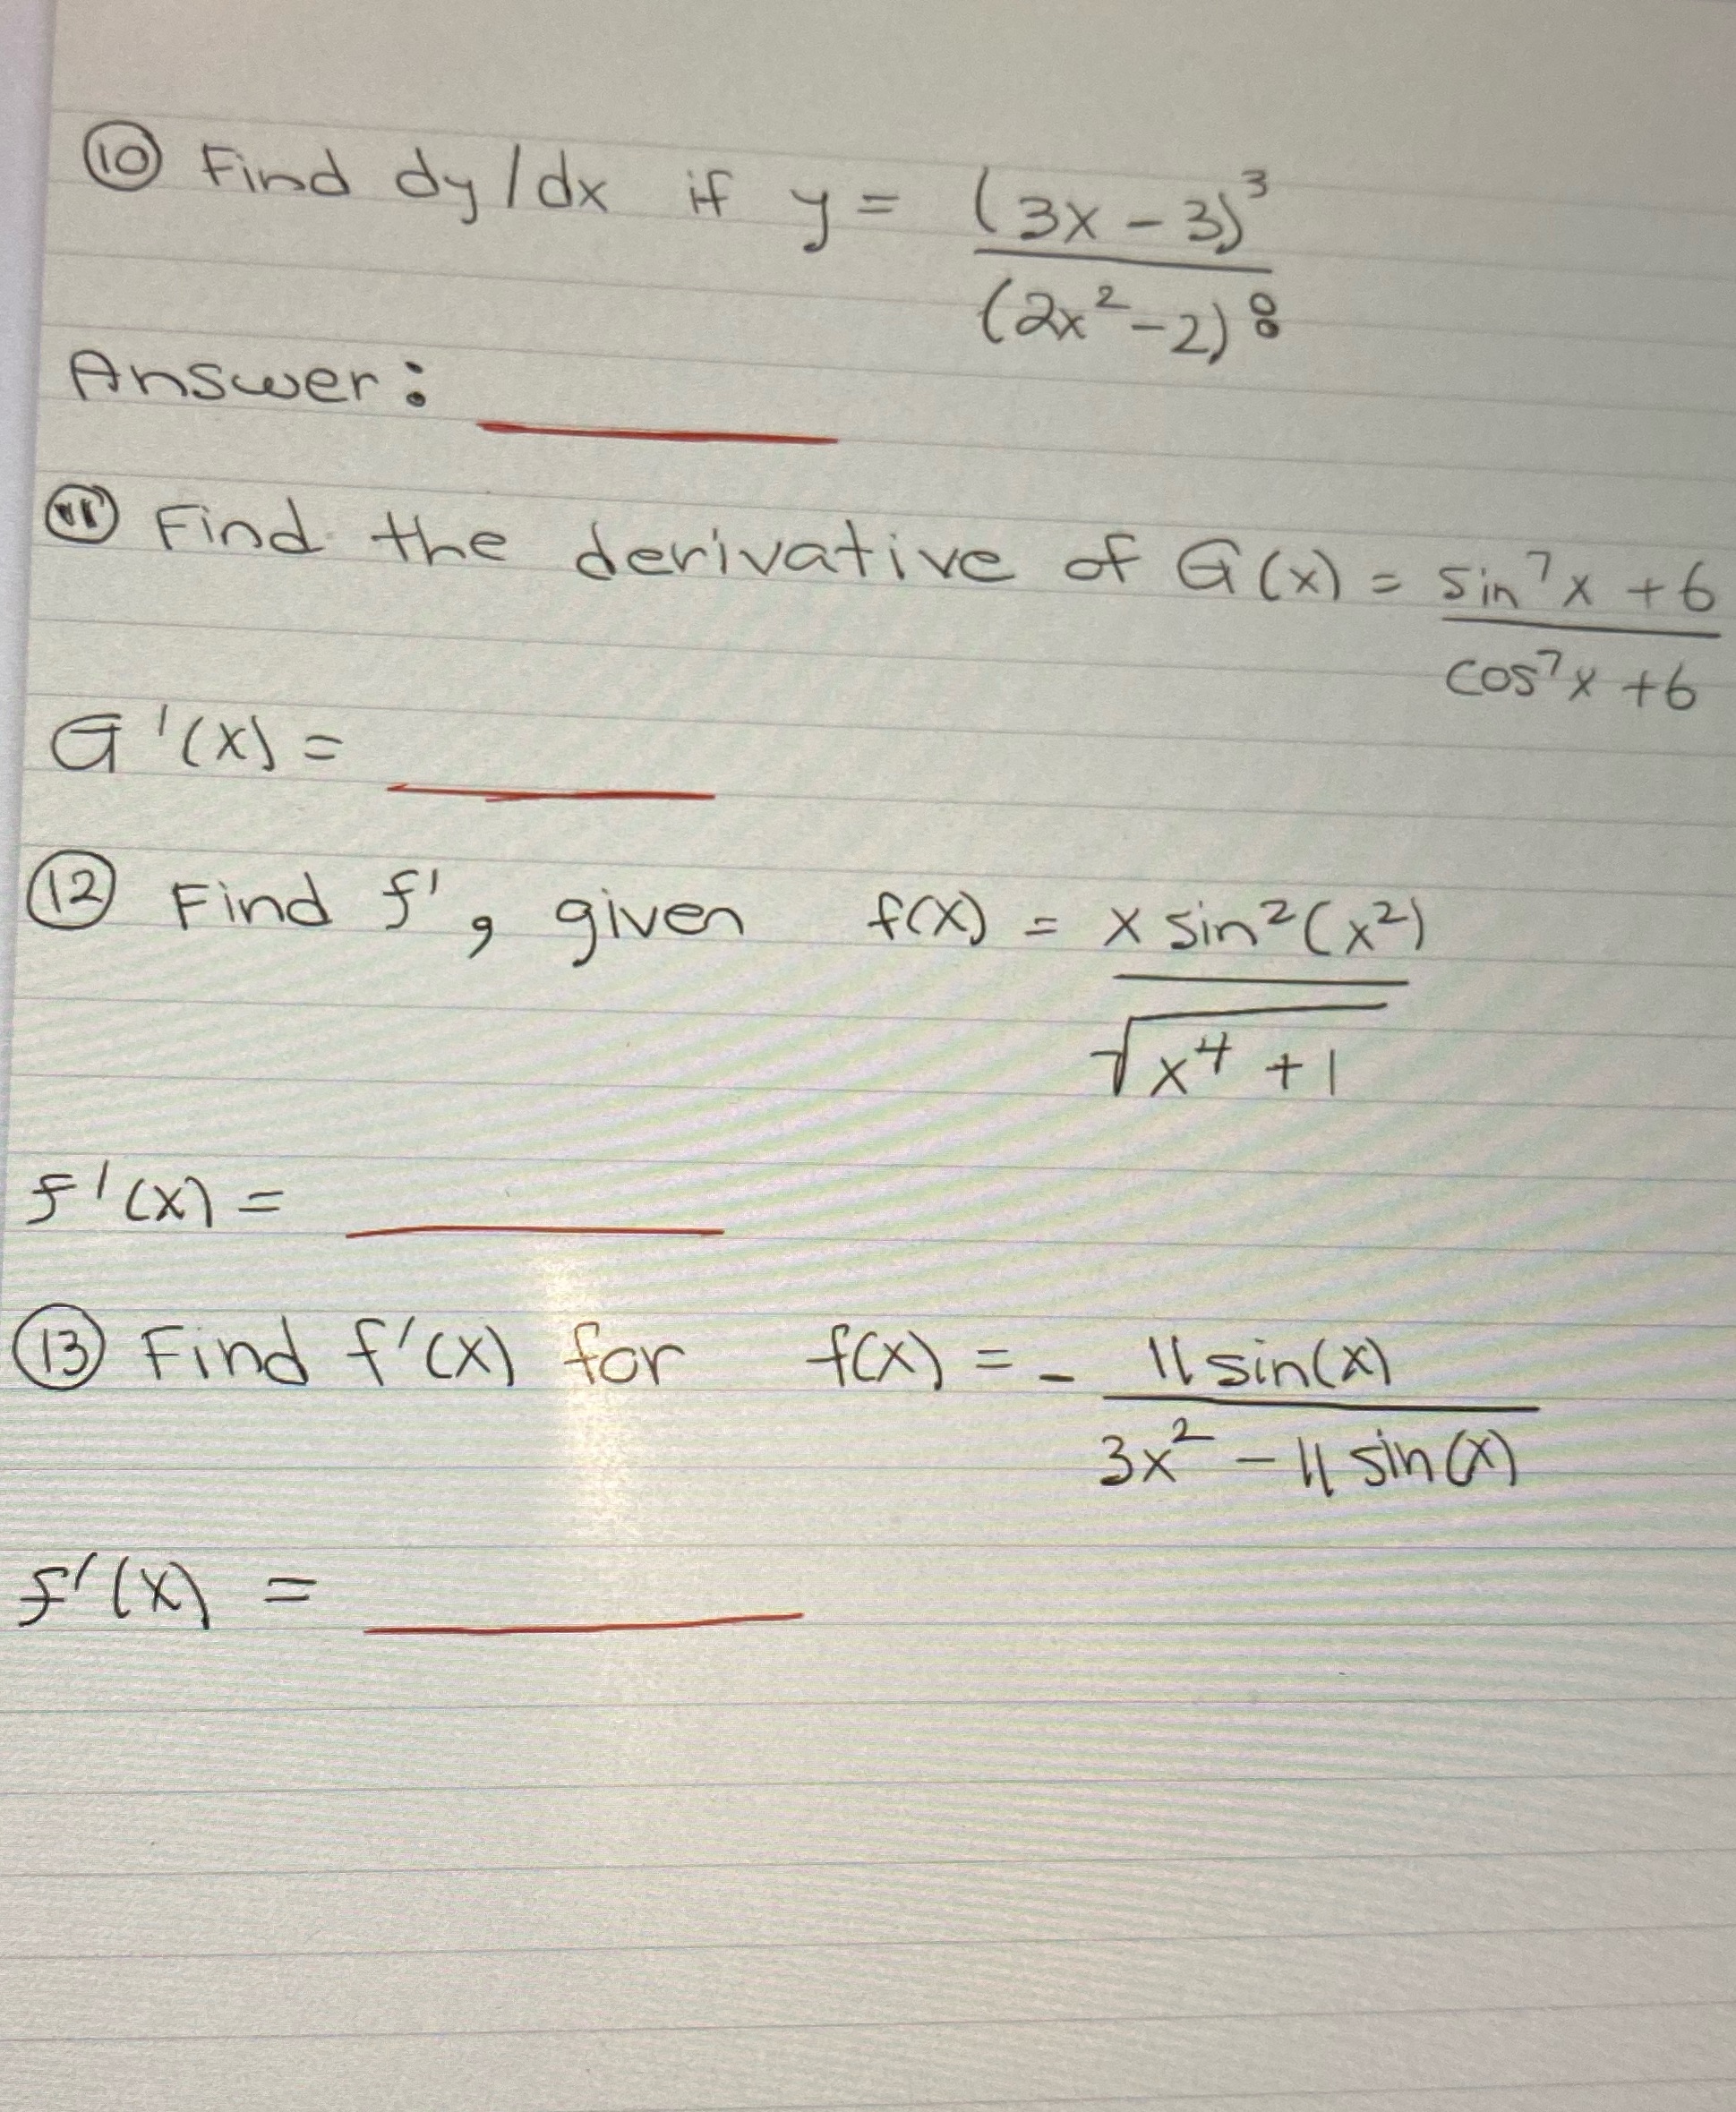 ⑩ Find dy/dx if y = (3x - 3)³
(2x² - 2)⁸
Answer:
⑪ Find the derivative of G(x) = sin⁷x + 6
cos⁷x + 6
G'(x) =
⑫ Find f', given f(x) = x sin²(x²)
√x⁴ + 1
f'(x) =
⑬ Find f'(x) for f(x) = - 11 sin(x)
3x² - 11 sin(x)
f'(x) =